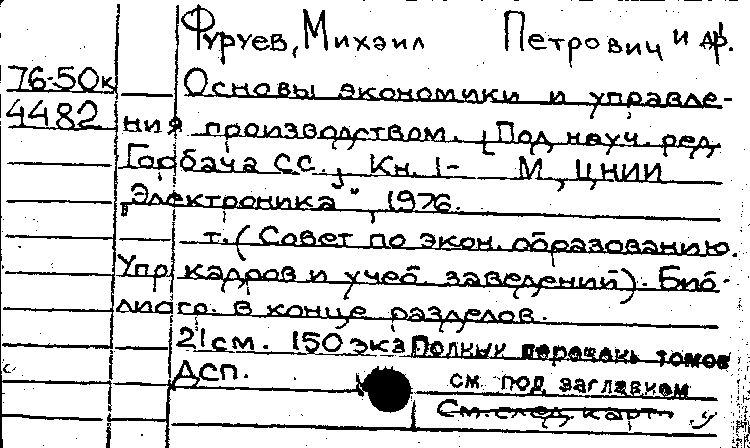 Фуруев, Михаил Петрович и др.
76-50к Основы экономики и управле-
4482 ния производством. [Под науч. ред.
Горбача С.С.] Кн. 1- М, ЦНИИ
„Электроника", 1976.
т. (Совет по экон. образованию.
Упр кадров и учеб. заведений). Биб-
лиогр. в конце разделов.
21см. 150 экз Полный перечень томов
ДСП. см под заглавием
См. след. карт. У